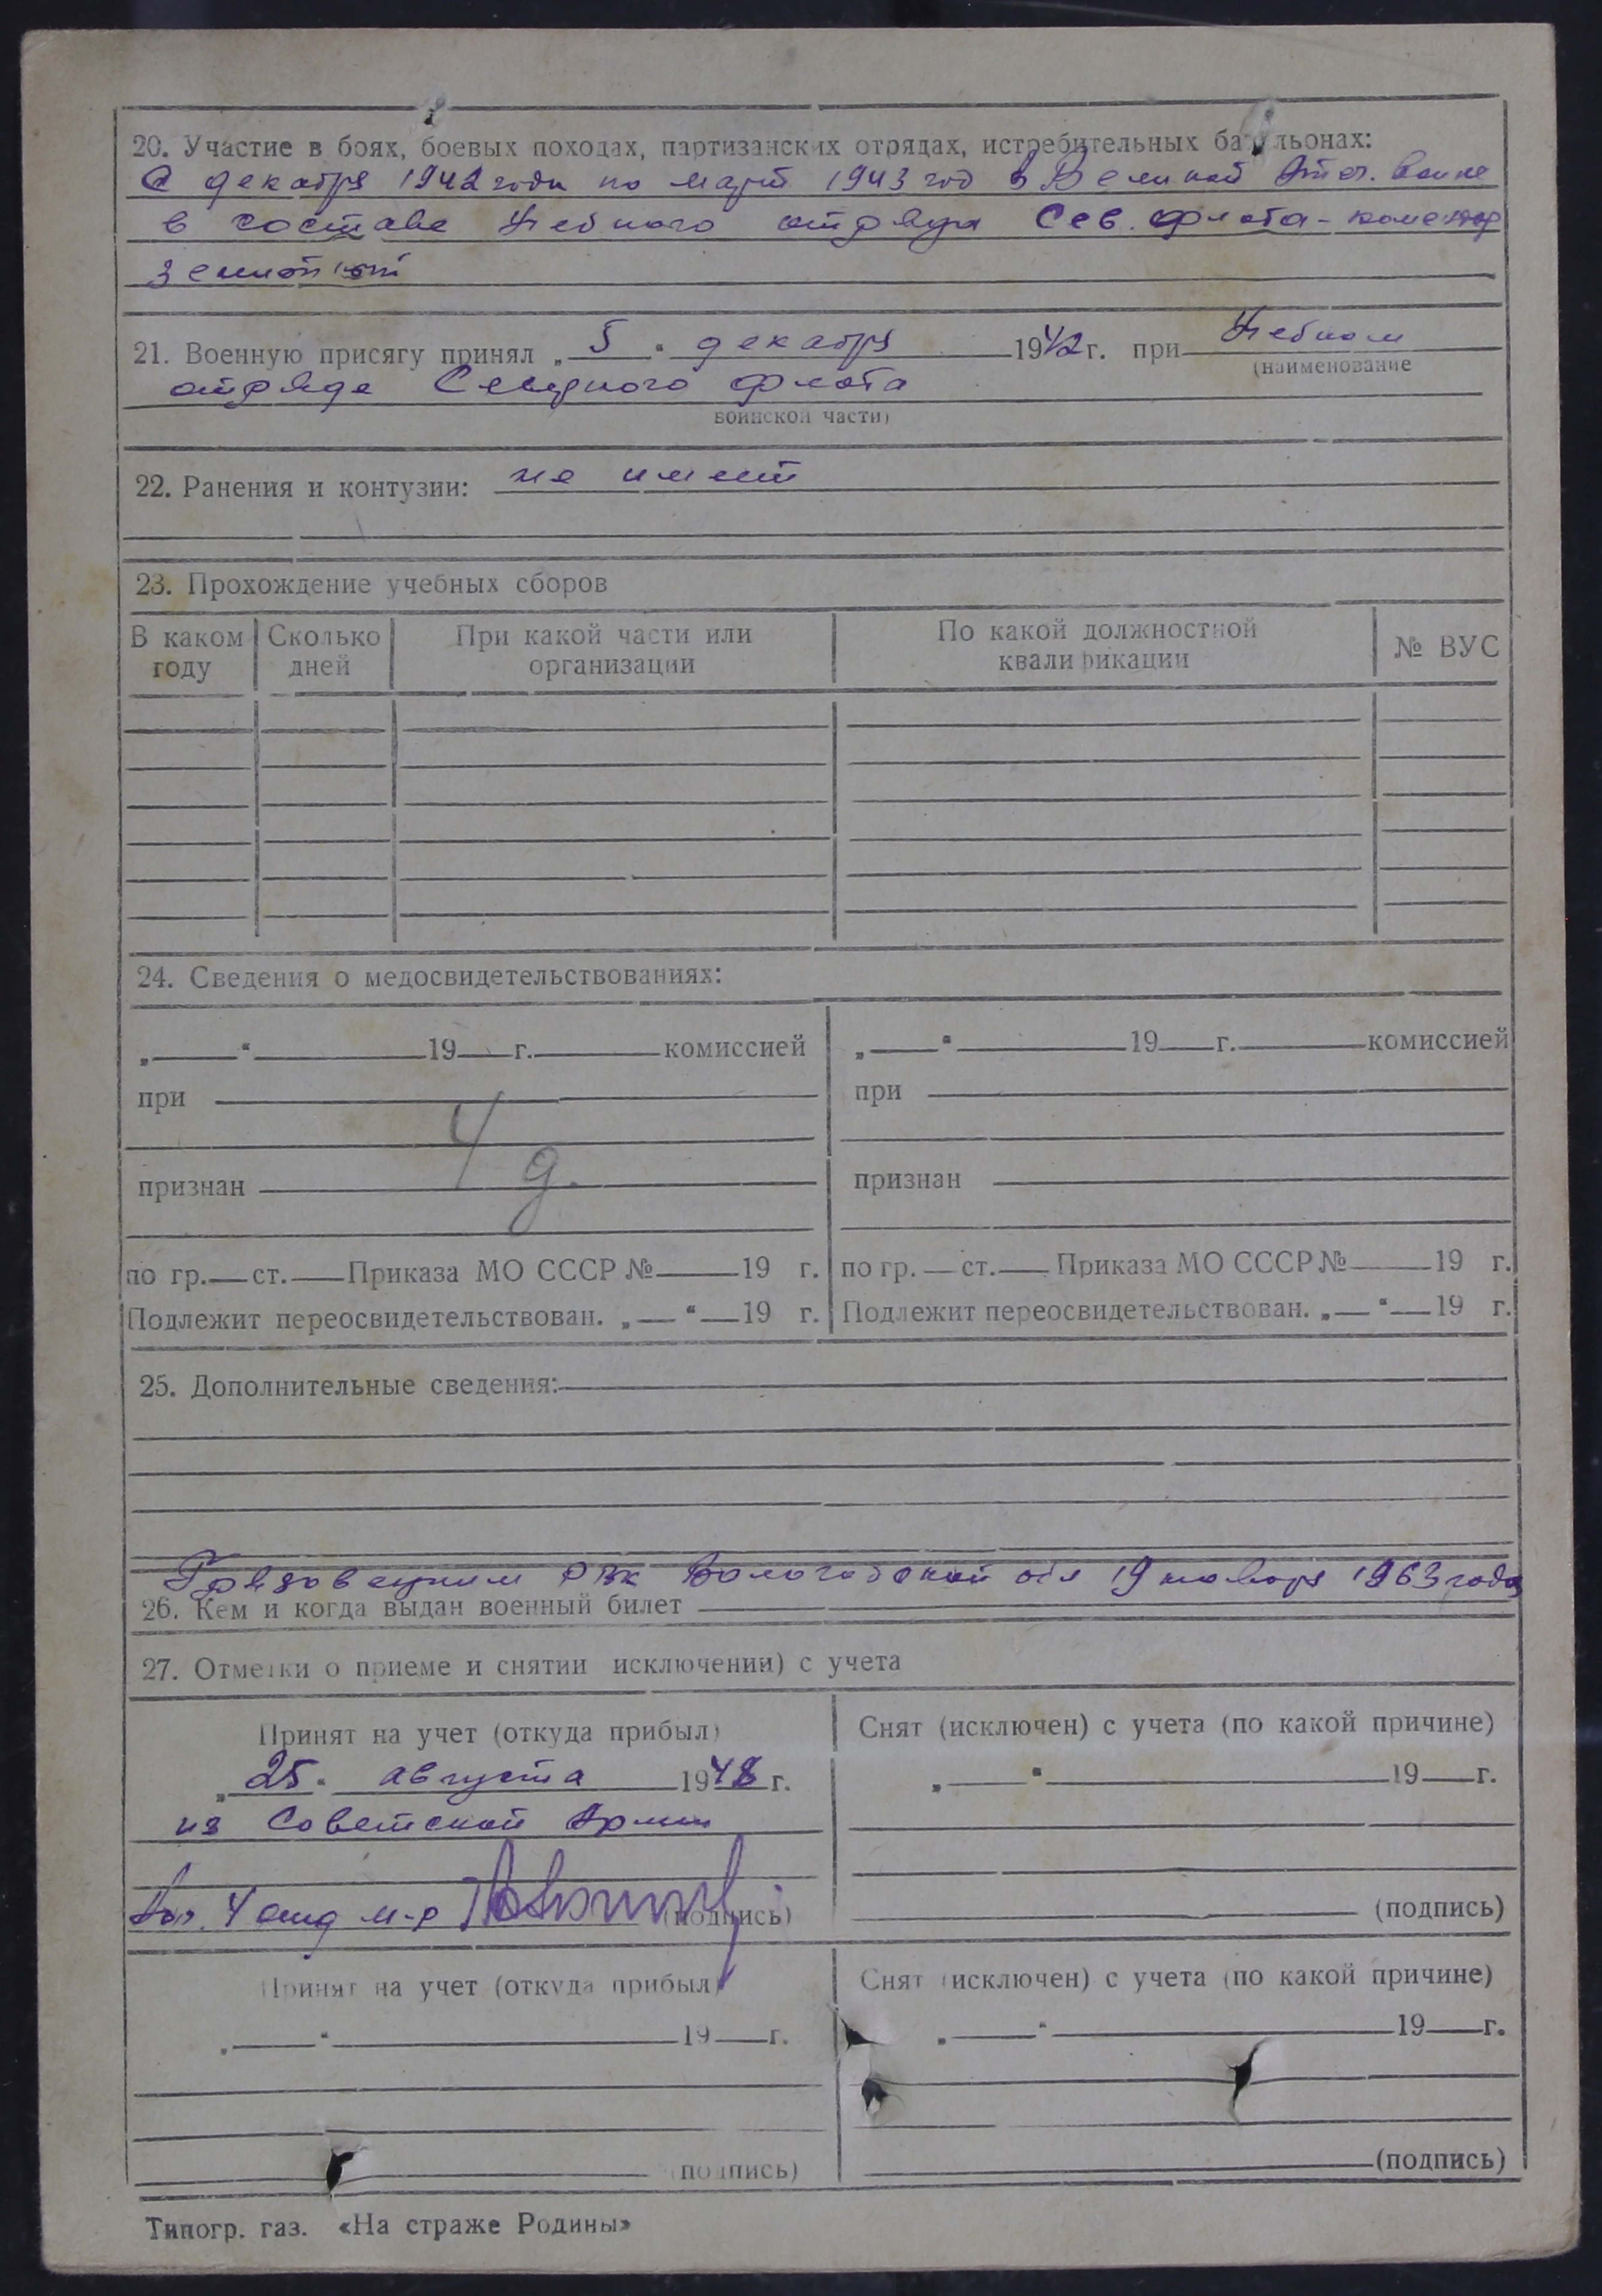 20. Участие в боях, боевых походах, партизанских отрядах, истребительных батальонах:
С декабря 1942 года по март 1943 год в Великой Отеч. Войне
в составе Учебного отряда Сев. флота - комендор
зенитчит
21. Военную присягу принял „ 5 “ декабря 1942 г. при Учебном
(наименование
отряде Северного флота
воинской части)
22. Ранения и контузии: не имеет
23. Прохождение учебных сборов
В каком году Сколько дней При какой части или организации По какой должностной квалификации № ВУС
24. Сведения о медосвидетельствованиях:
„ “ 19 г. комиссией „ “ 19 г. комиссией
при при
Ч
признан д. признан
по гр. ст. Приказа МО СССР № 19 г. по гр. ст. Приказа МО СССР № 19 г.
Подлежит переосвидетельствован. „ “ 19 г. Подлежит переосвидетельствован. „ “ 19 г.
25. Дополнительные сведения:
Грязовецким РВК Вологодской обл 19 ноября 1963 года
26. Кем и когда выдан военный билет
27. Отметки о приеме и снятии исключении) с учета
Принят на учет (откуда прибыл) Снят (исключен) с учета (по какой причине)
„ 25 “ августа 1948 г. „ “ 19 г.
из Советской Армии
4 отд м-р (подпись) (подпись)
Принят на учет (откуда прибыл) Снят (исключен) с учета (по какой причине)
„ “ 19 г. „ “ 19 г.
(подпись) (подпись)
Типогр. газ. «На страже Родины»